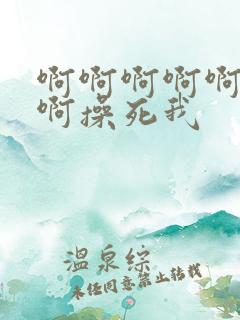 啊啊啊啊啊
啊操死我
温泉综
未经同意禁止转载